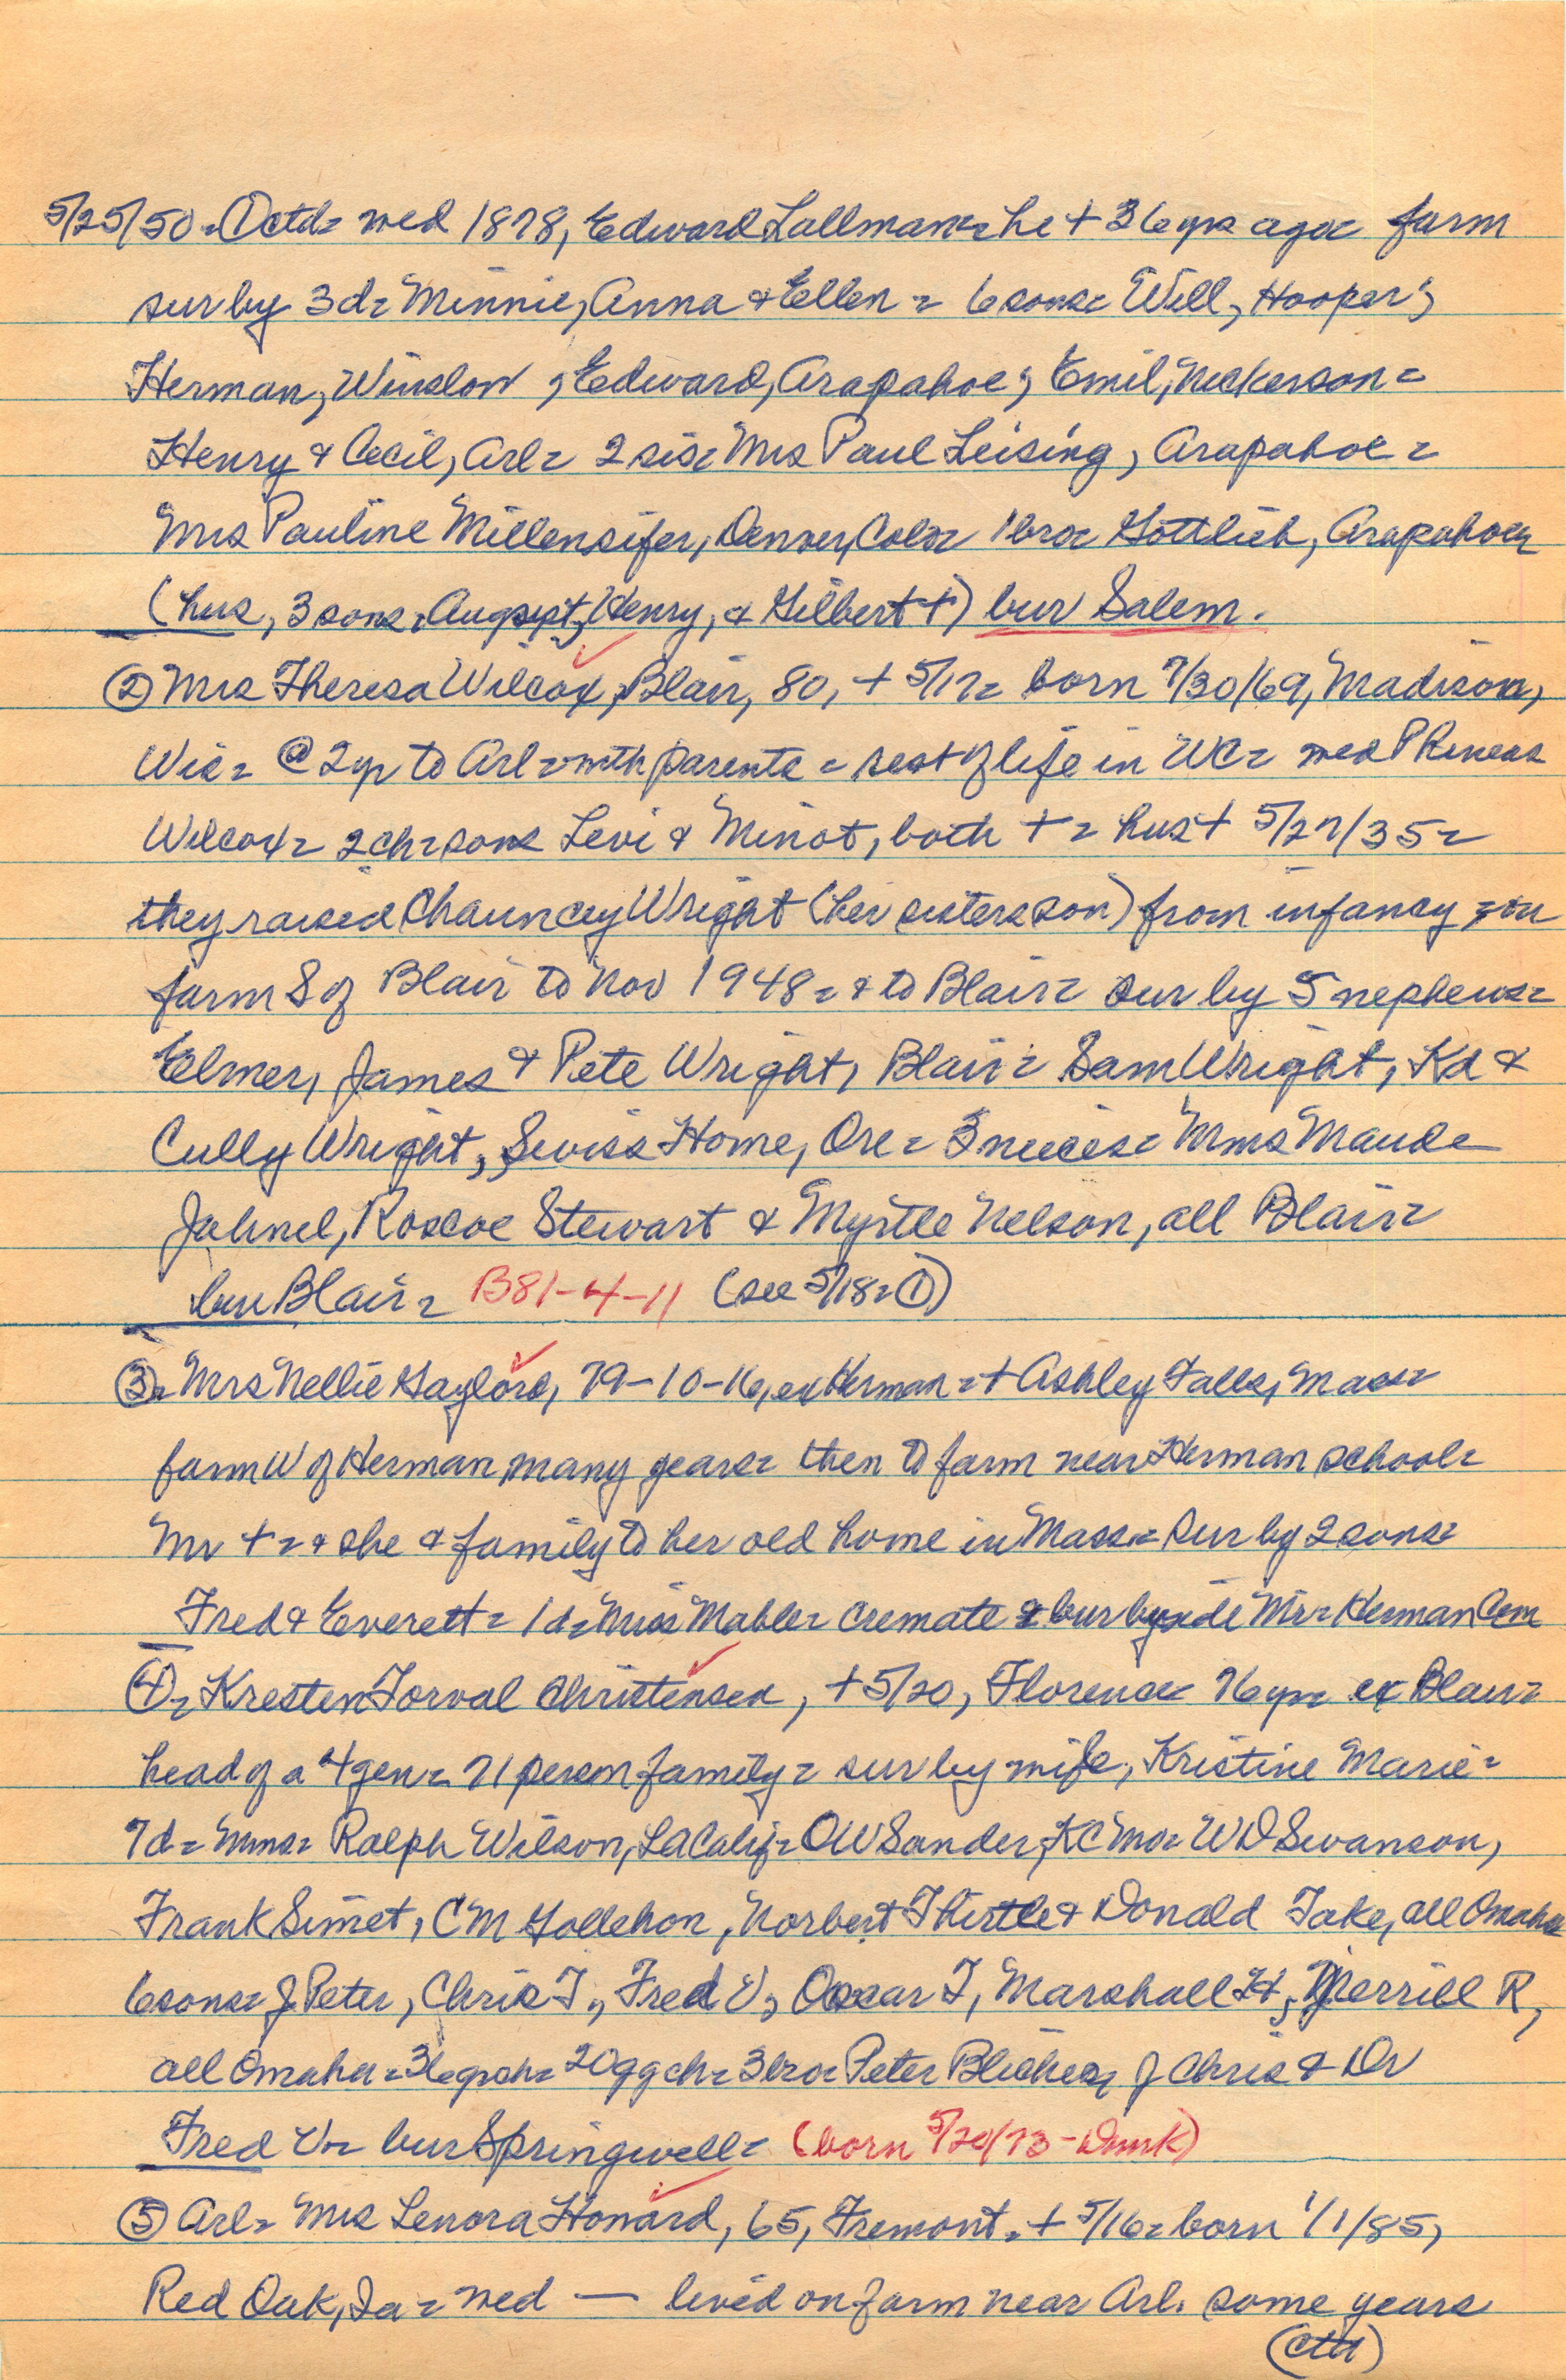 5/25/50 = Ctd = wed 1878, Edward Lallman = he + 36 yrs ago = farm
sur by 3 d = Minnie, Anna & Ellen = 6 sons = Will, Hooper;
Herman, Winslow ; Edward, Arapahoe ; Emil, Nickerson =
Henry & Cecil, Arl = 2 sis = Mrs Paul Leising, Arapahoe =
Mrs Pauline Millensifer, Denver, Colo = 1 bro = Gottlieb, Arapahoe =
(hus, 3 sons, August, Henry, & Gilbert +) bur Salem.
② Mrs Theresa Wilcox, Blair, 80, + 5/17 = born 7/30/69, Madison,
Wis = @ 2 yr to Arl with parents = rest of life in WC = wed Phineas
Wilcox = 2 ch = sons Levi & Minot, both + = hus + 5/27/35 =
they raised Chauncey Wright (her sisters son) from infancy = on
farm S of Blair to Nov 1948 = & to Blair = sur by 5 nephews =
Elmer, James & Pete Wright, Blair = Sam Wright, Kd &
Cully Wright, Swiss Home, Ore = 3 nieces = Mms Maude
Jahnel, Roscoe Stewart & Myrtle Nelson, all Blair =
bur Blair = B81-4-11 (see 5/18 = ①)
③ = Mrs Nellie Gaylord, 79-10-16, ex Herman = + Ashley Falls, Mass =
farm W of Herman many years = then to farm near Herman school =
Mr + = & she & family to her old home in Mass = sur by 2 sons =
Fred & Everett = 1 d = Miss Mable = cremate & bur byside Mr = Herman Cem
④ = Kresten Torval Christensen, + 5/20, Florence 76 yr = ex Blair =
head of a 4 gen = 71 person family = sur by wife, Kristine Marie =
7 d = Mms = Ralph Wilson, LA Calif = OW Sander, KC Mo = WD Swanson,
Frank Simet, CM Gollehon, Norbert Thirtle & Donald Take, all Omaha
6 sons = J Peter, Chris T., Fred V, Oscar T, Marshall H, Merrill R,
all Omaha = 36 grch = 20 ggch = 3 bro = Peter Blicher, J Chris & Dr
Fred V = bur Springwell = (born 5/20/73 - Dmrk)
⑤ Arl = Mrs Lenora Howard, 65, Fremont, + 5/16 = born 1/1/85,
Red Oak, Ia = wed — lived on farm near Arl. some years
(ctd)